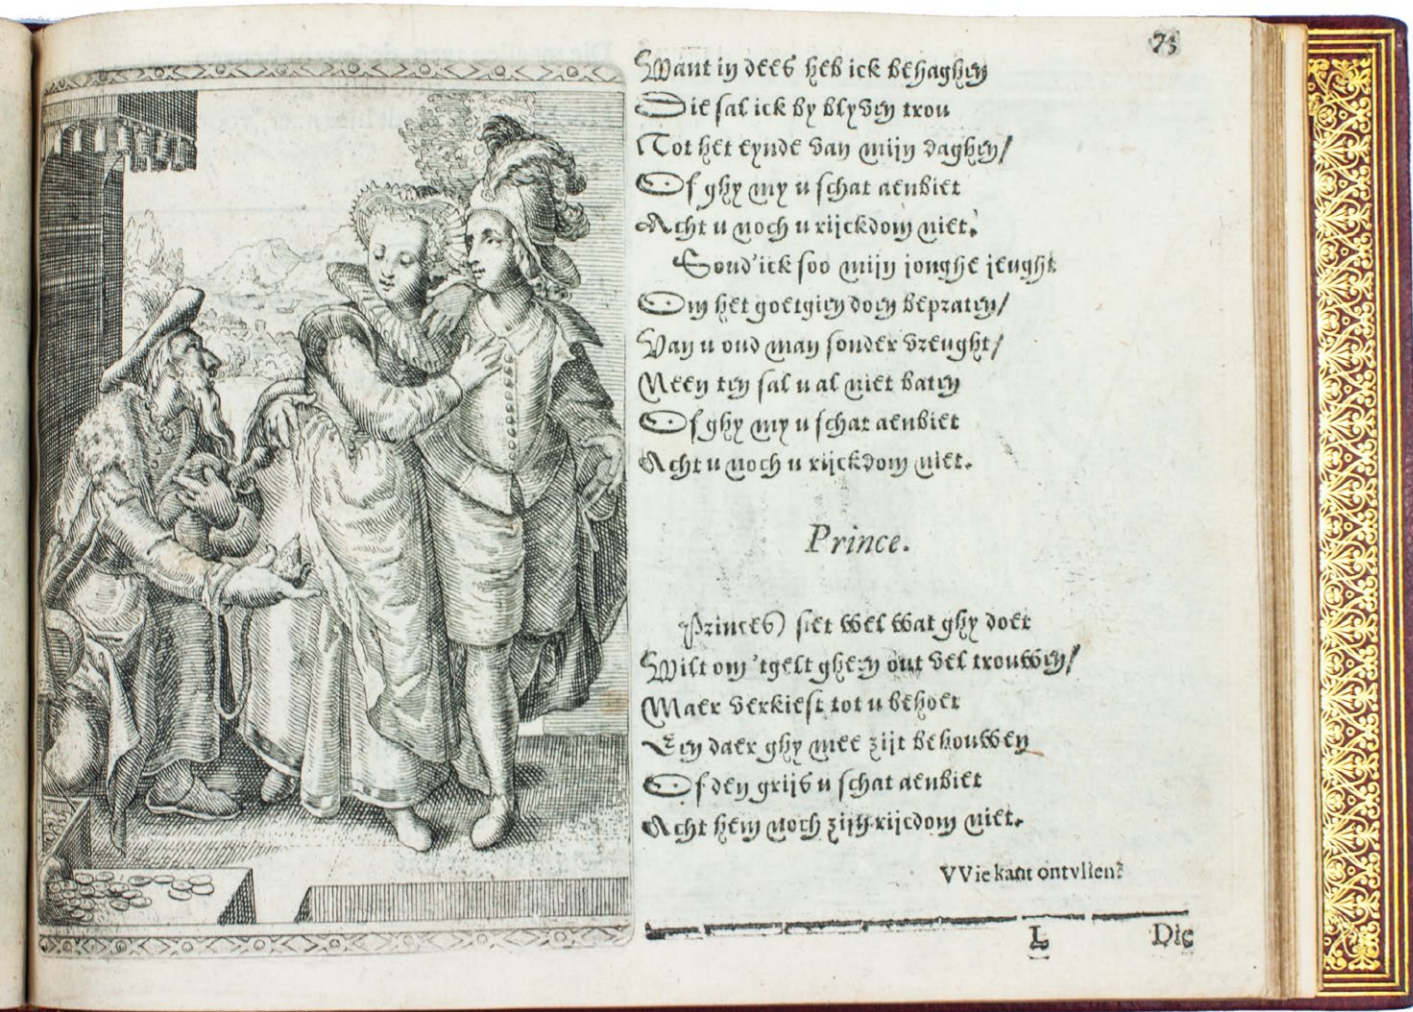 73
Want in dees heb ick behaghen
Die sal ick by blyven trou
Tot het eynde van mijn daghen/
Of ghy my u schat aenbiet
Acht u noch u rijckdom niet.
Soud'ick soo mijn jonghe jeught
Om het goetgien doen bepraten/
Van u oud man sonder vreught/
Neen ten sal u al niet baten
Of ghy my u schat aenbiet
Acht u noch u rijckdom niet.
Prince.
Princes) siet wel wat ghy doet
Wilt om 'tgelt gheen out vel trouwen/
Maer verkiest tot u behoet
Een daer ghy mee zijt behouwen
Of den grijs u schat aenbiet
Acht hem noch zijn rijcdom niet.
VVie kant ontvlien?
L Die